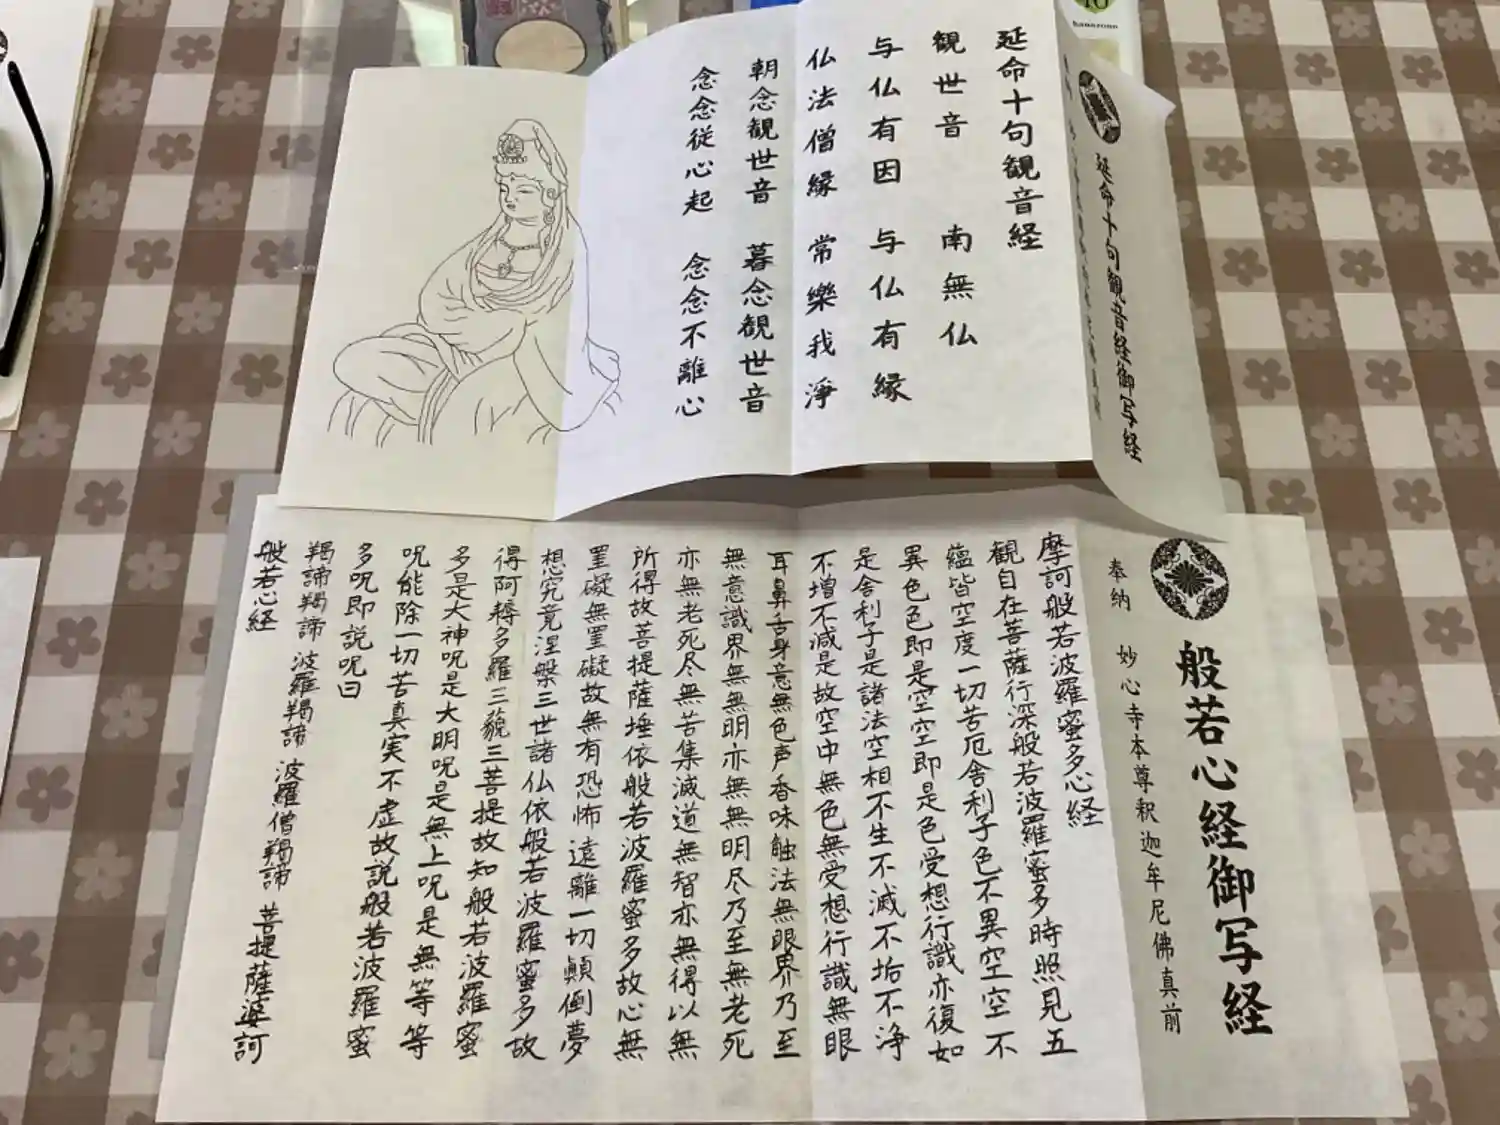 延命十句観音経御写経
延命十句観音経
観世音 南無仏
与仏有因 与仏有縁
仏法僧縁 常樂我淨
朝念観世音 暮念観世音
念念従心起 念念不離心
般若心経御写経
奉納 妙心寺本尊釈迦牟尼佛真前
摩訶般若波羅蜜多心経
観自在菩薩行深般若波羅蜜多時照見五
蘊皆空度一切苦厄舎利子色不異空空不
異色色即是空空即是色受想行識亦復如
是舎利子是諸法空相不生不滅不垢不浄
不増不減是故空中無色無受想行識無眼
耳鼻舌身意無色声香味触法無眼界乃至
無意識界無無明亦無無明尽乃至無老死
亦無老死尽無苦集滅道無智亦無得以無
所得故菩提薩埵依般若波羅蜜多故心無
罣礙無罣礙故無有恐怖遠離一切顛倒夢
想究竟涅槃三世諸仏依般若波羅蜜多故
得阿耨多羅三藐三菩提故知般若波羅蜜
多是大神呪是大明呪是無上呪是無等等
呪能除一切苦真実不虚故説般若波羅蜜
多呪即説呪曰
羯諦羯諦 波羅羯諦 波羅僧羯諦 菩提薩婆訶
般若心経
hanazono